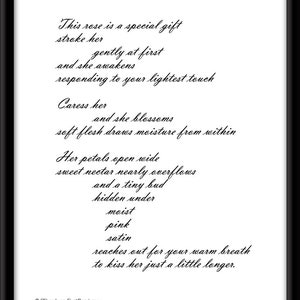 This rose is a special gift
stroke her
gently at first
and she awakens
responding to your lightest touch
Caress her
and she blossoms
soft flesh draws moisture from within
Her petals open wide
sweet nectar nearly overflows
and a tiny bud
hidden under
moist
pink
satin
reaches out for your warm breath
to kiss her just a little longer.